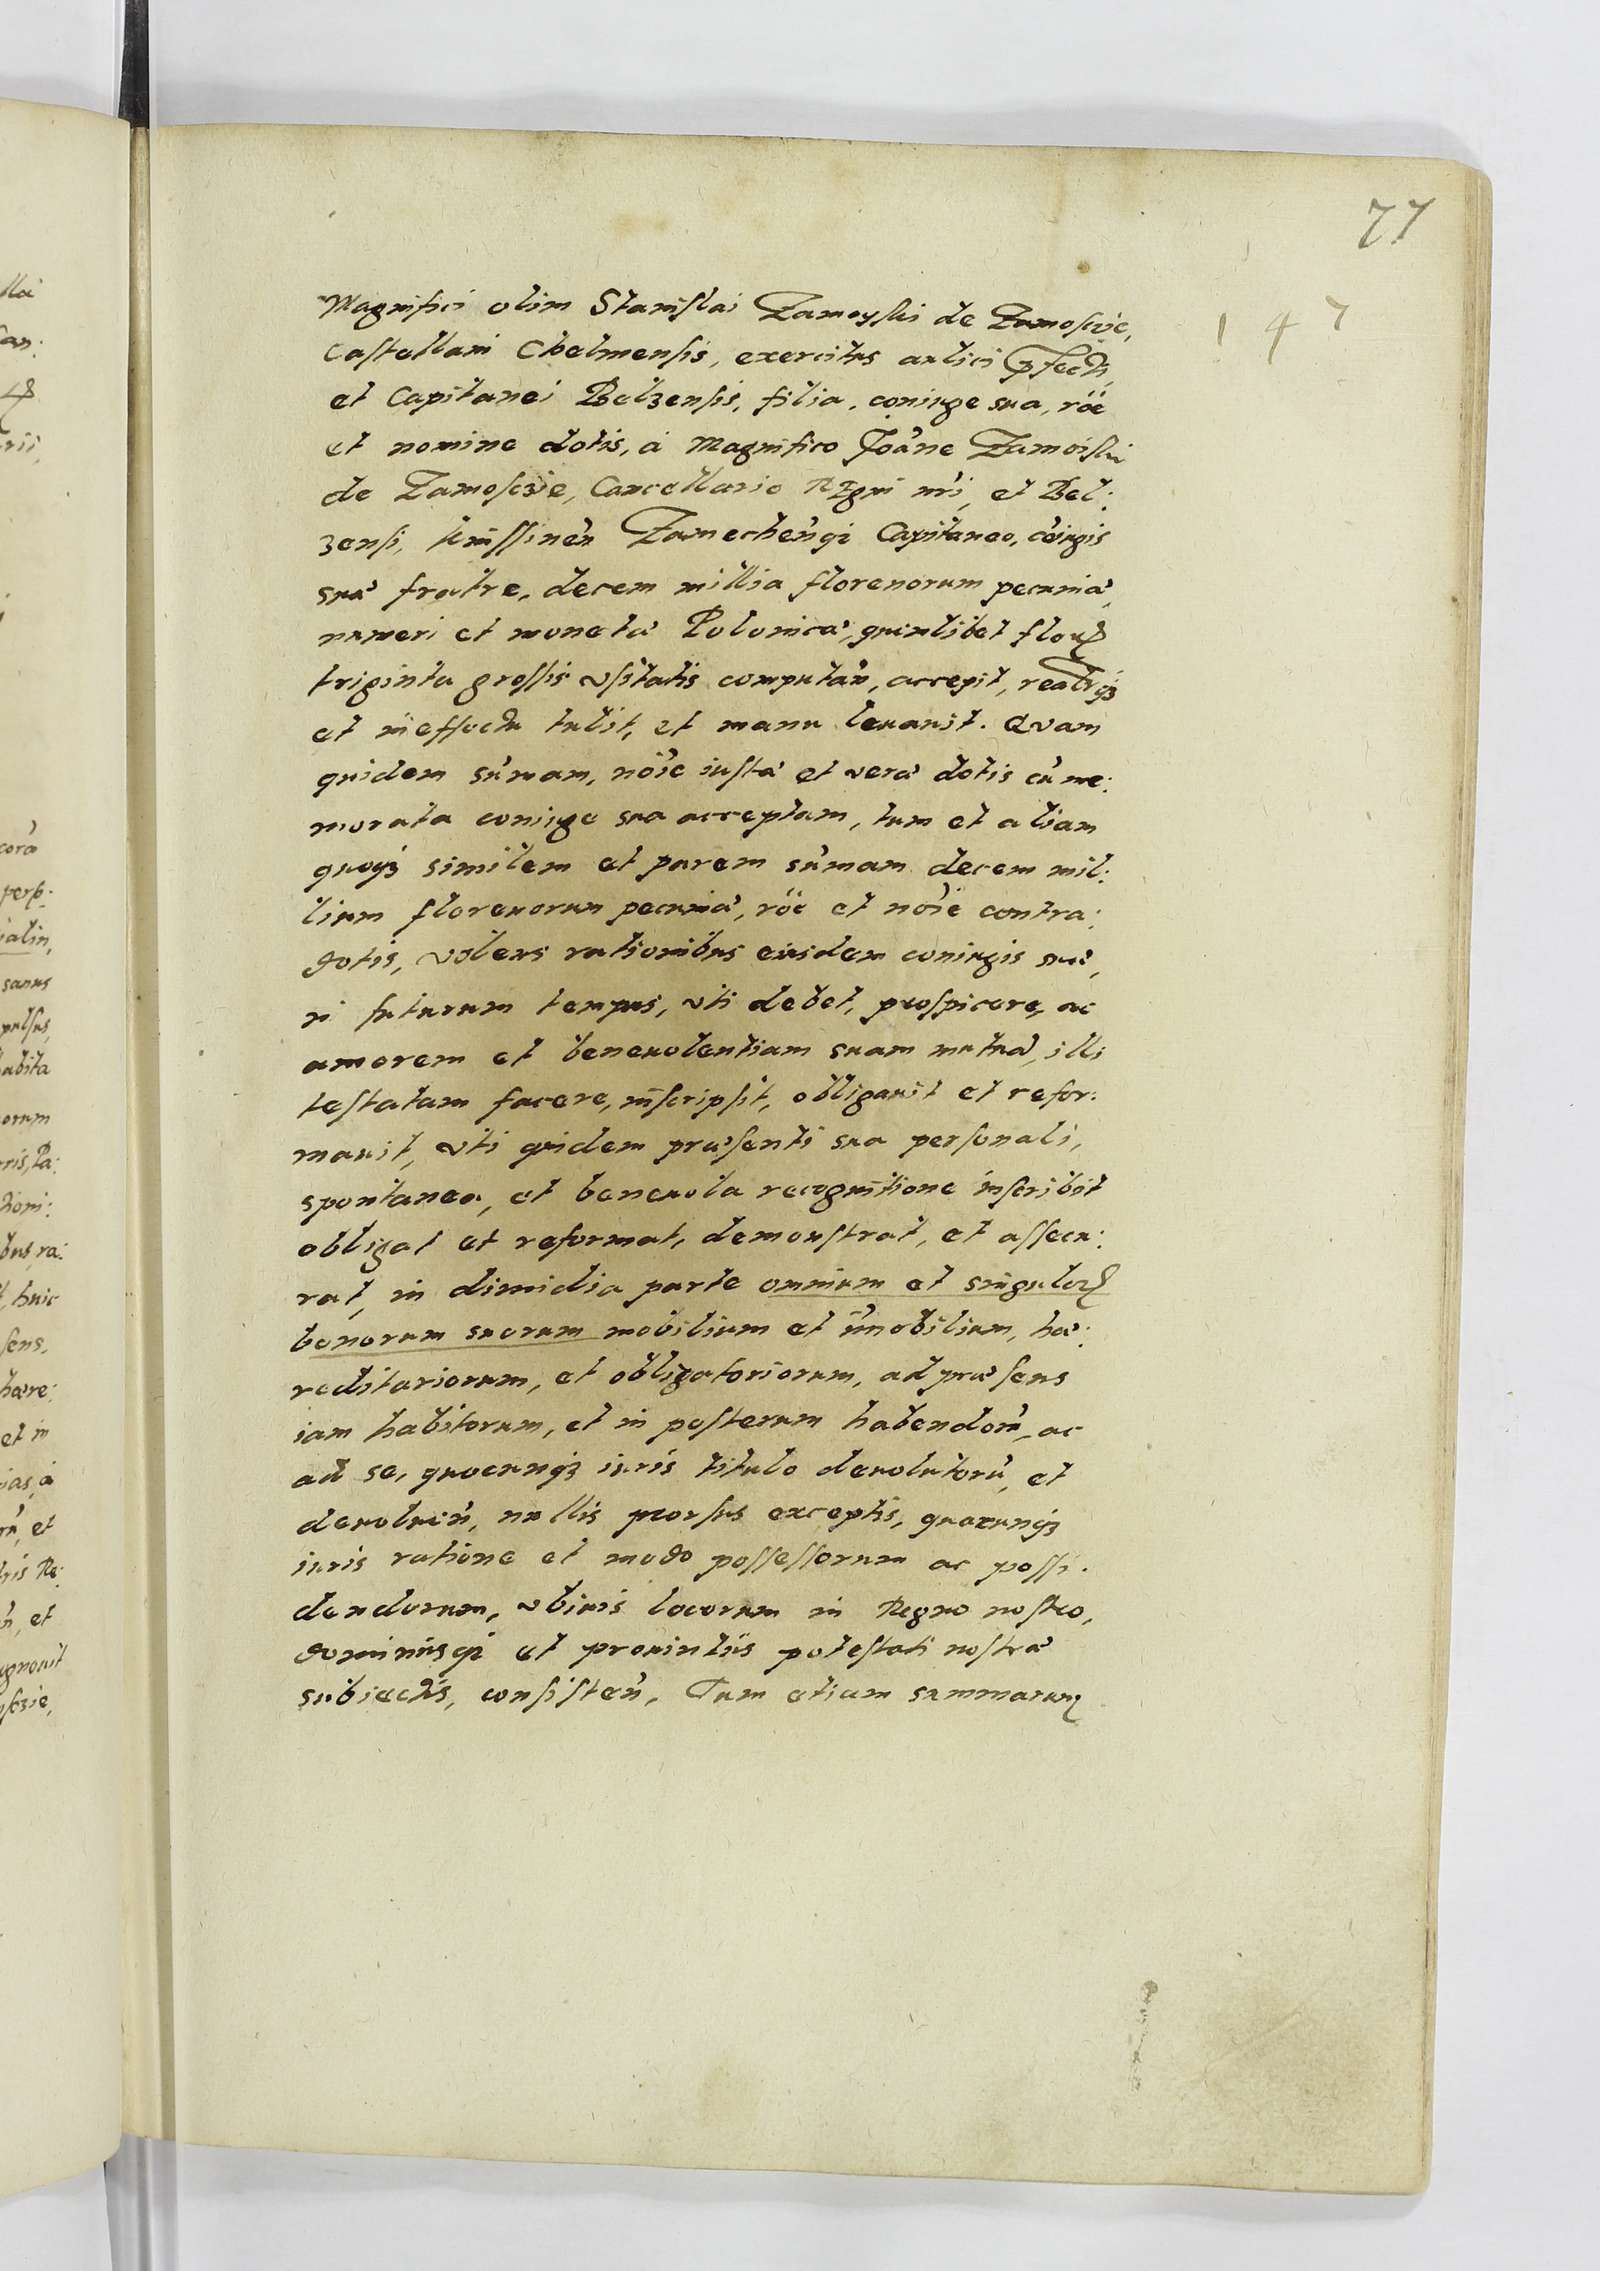 77
147
Magnifici olim Stanislai Zamoyski de Zamoscie,
Castellani Chelmensis, exercitus aulici p̱fecti,
et Capitanei Belzensis, filia, coniuge sua, rõe
et nomine dotis, á Magnifico Joãne Zamoiski
de Zamosczie, Cancellario Regni nr̃i, et Bel:
zensi, Knissineñ Zamecheñqȝ Capitaneo, cõiugis
suæ fratre, decem millia florenorum pecuniæ,
numeri et monetæ Polonicæ, quemlibet
triginta grossis vsitatis computañ, accepit, realrqȝ
et in effectu tulit, et manu leuauit. Quam
quidem sũmam, nõie iustæ et veræ dotis cũ me:
morata coniuge sua acceptam, tum et aliam
quoqȝ similem et parem sũmam decem mil:
lium florenorum pecuniæ, rõe et nõie contra:
dotis, volens rationibus eiusdem coniugis suæ,
in futurum tempus, vti debet, prospicere, ac
amorem et beneuolentiam suam mutuã, illi
testatam facere, inscripsit, obligauit et refor:
mauit, vti quidem præsenti sua personali,
spontanea, et beneuola recognitione inscribit
obligat et reformat, demonstrat, et assecu:
rat, in dimidia parte omnium et singuloꝝ
bonorum suorum mobilium et im̃obilium, hæ:
reditariorum, et obligatoriorum, ad præsens
iam habitorum, et in posterum habendorũ, ac
ad se, quocunqȝ iuris titulo deuolutorũ, et
deuoluẽn, nullis prorsus exceptis, quocunqȝ
iuris ratione et modo possessorum ac possi:
dendorum, vbiuis locorum in Regno nostro,
dominiisqȝ et prouintiis potestati nostræ
subiectis, consisteñ, Tum etiam summarum